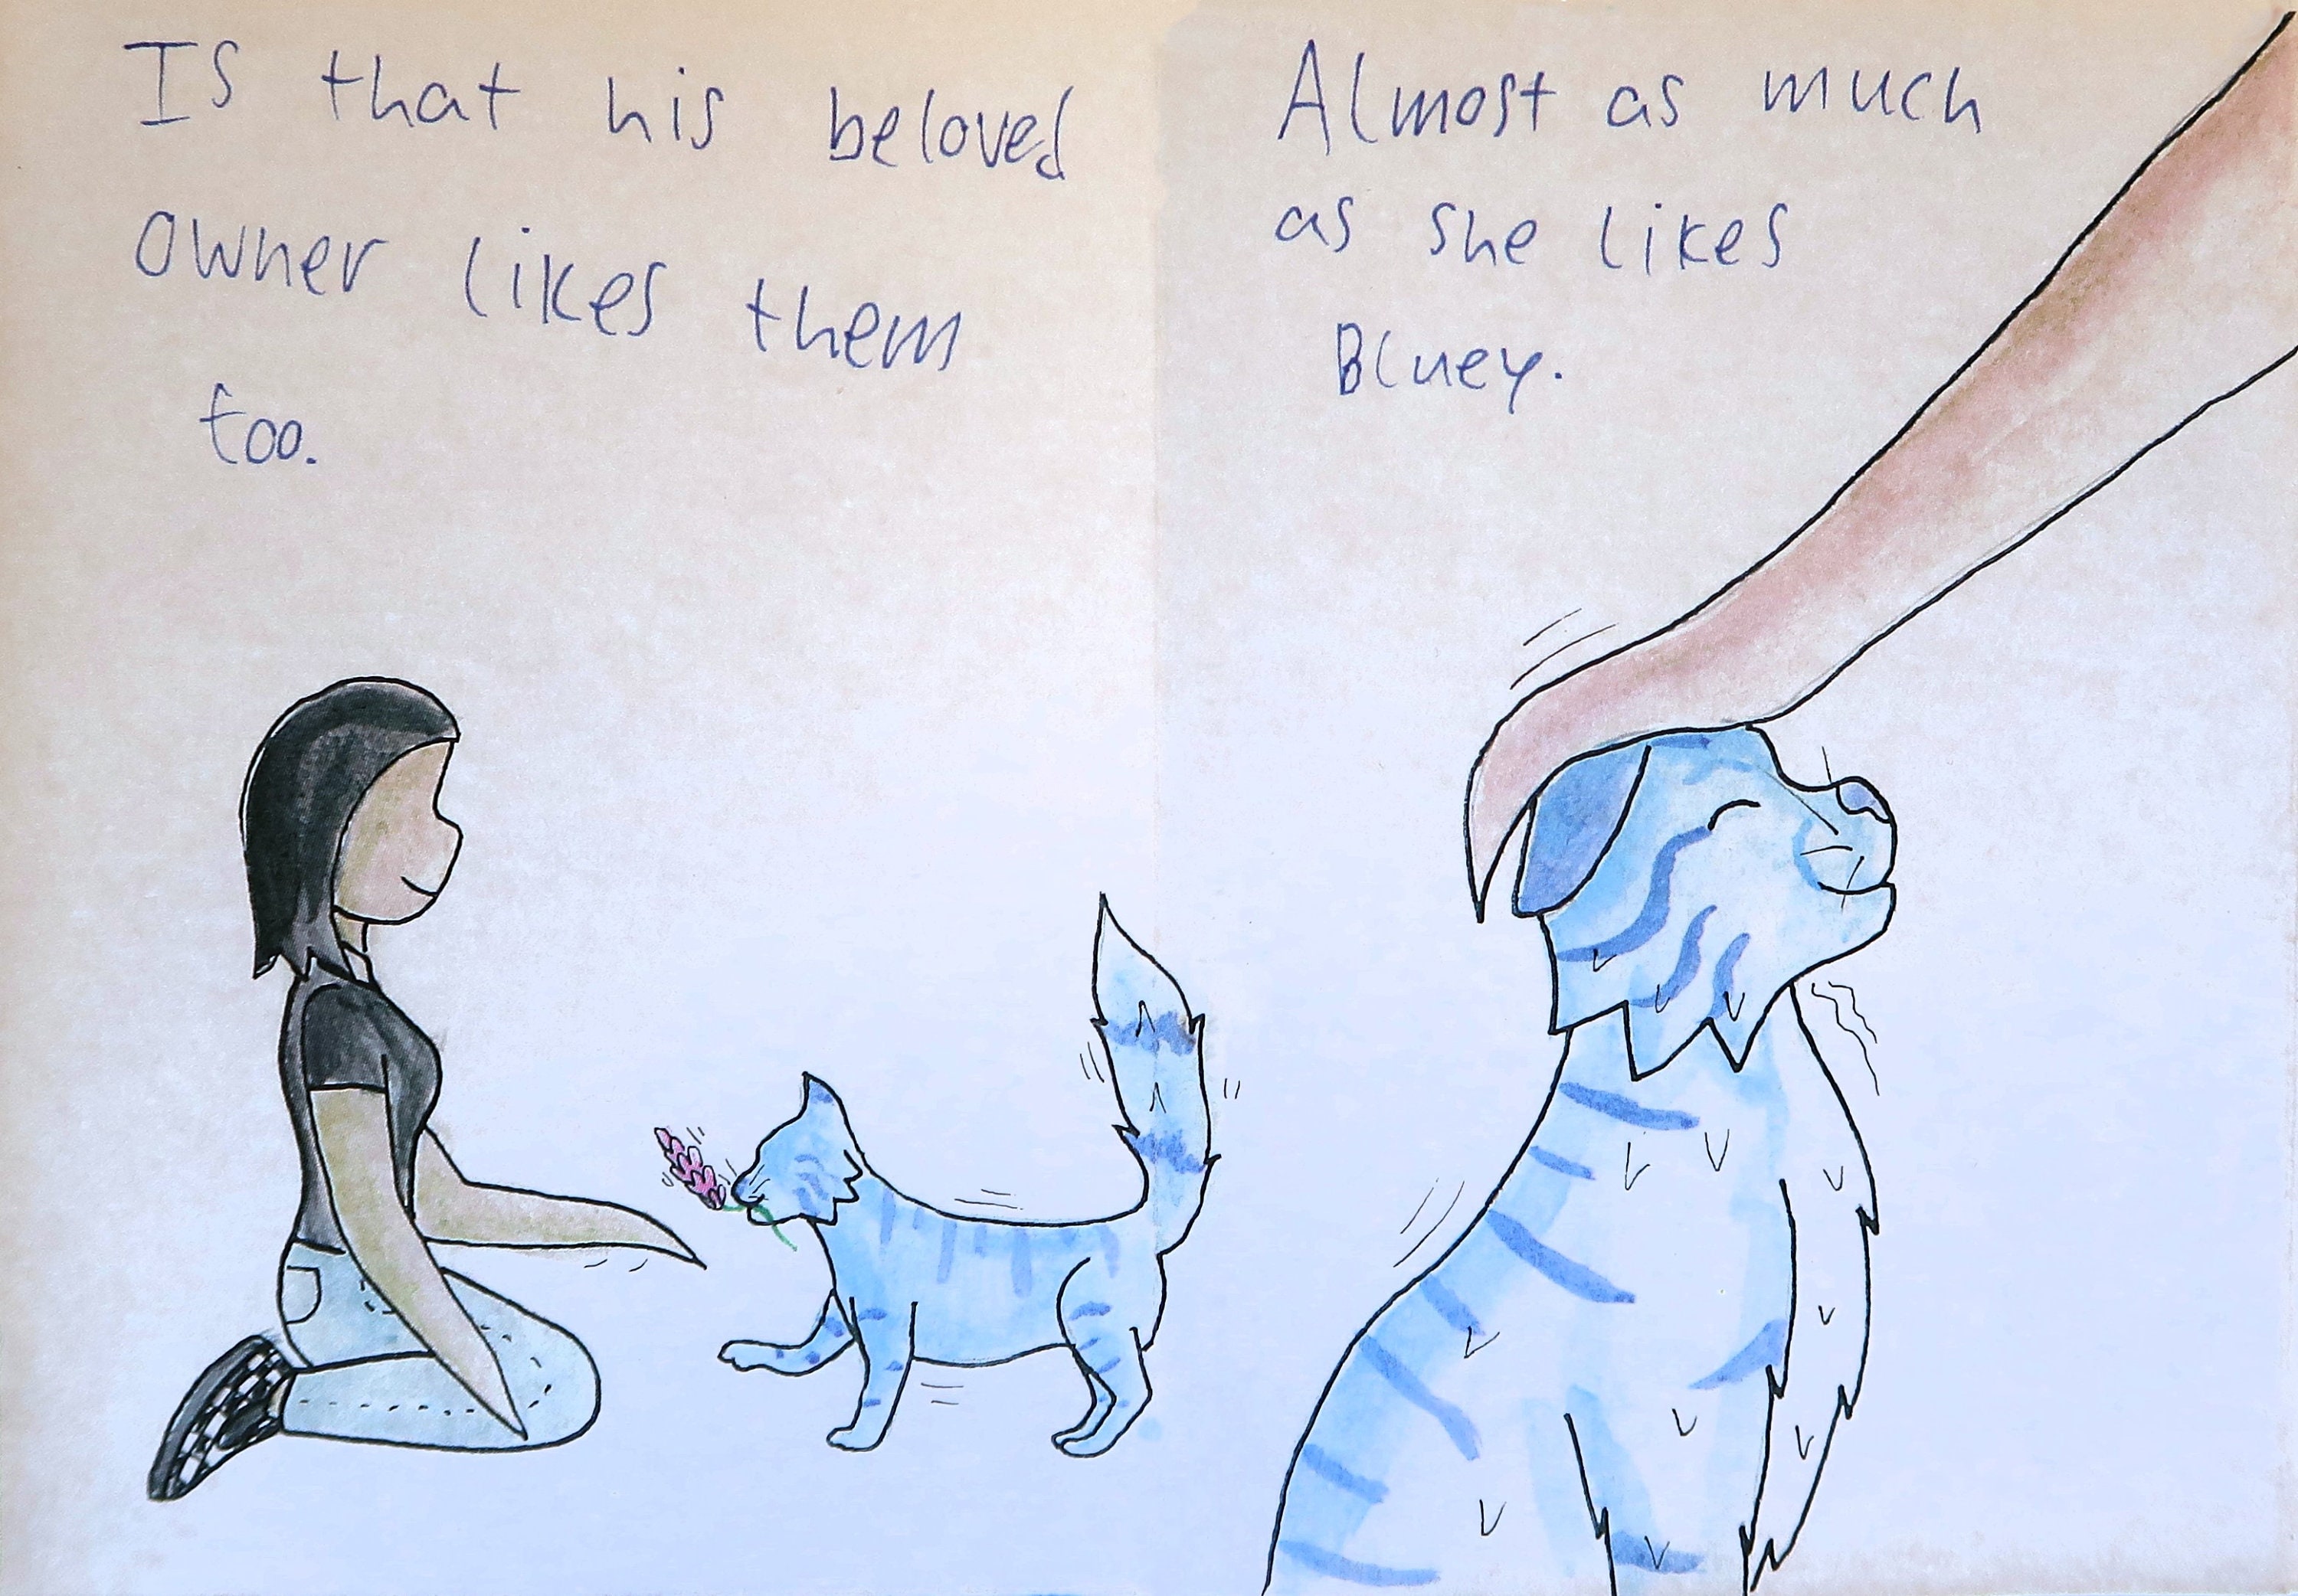 Is that his beloved
owner likes them
too.
Almost as much
as she likes
Bluey.